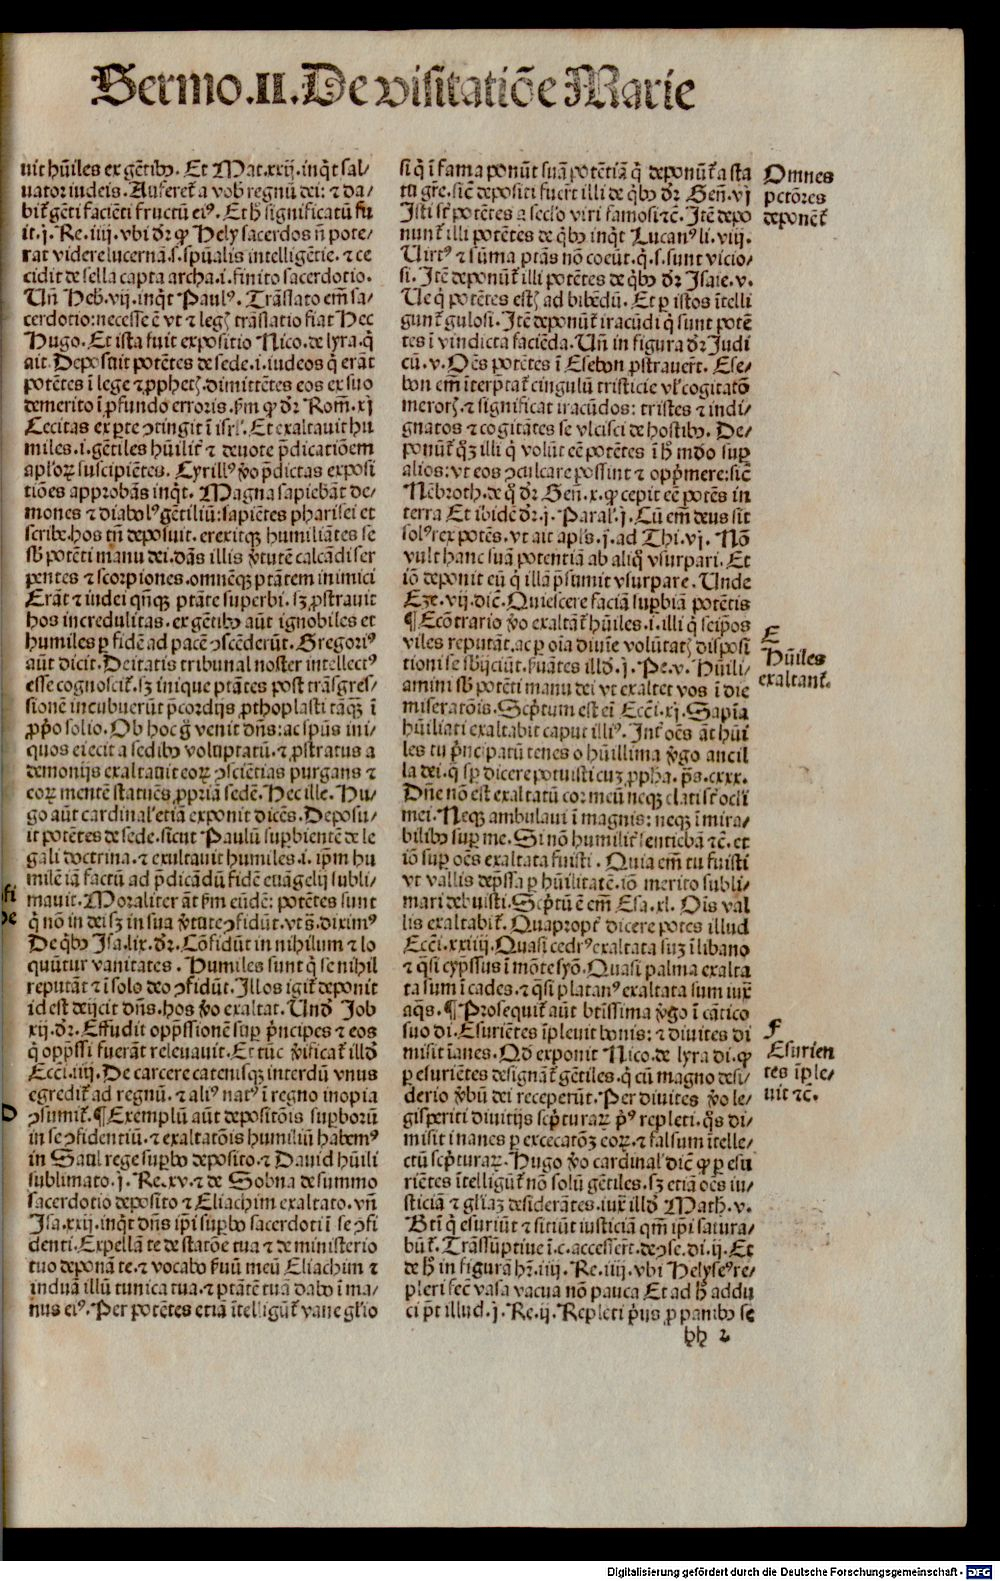 Sermo.II.De visitatiōe Marie
uit hūiles ex gētibꝰ. Et Mat.xxij. inqͥt sal⸗
uator iudeis. Auferet᷑ a vob̄ regnū dei: ⁊ da⸗
bit᷑ gēti faciēti fructū eiꝰ. Et h̄ significatū fu
it.j. Re.iiij. vbi dr̄ ꝙ Hely sacerdos n̄ pote⸗
rat videre lucernā.s. spūalis intelligētie. ⁊ ce
cidit de sella capta archa.i. finito sacerdotio.
Un̄ Heb.vij. inqͥt Paulꝰ. Trāslato em̄ sa⸗
cerdotio: necesse ē vt ⁊ legꝭ trāslatio fiat Hec
Hugo. Et ista fuit expositio Nico. de lyra. qͥ
ait. Deposuit potētes de sede.i. iudeos qͥ erāt
potētes ī lege ⁊ ꝓphetꝭ. dimittētes eos ex suo
demerito ī ꝓfundo erroris. ẜm ꝙ dr̄ Rom̄. xj
Cecitas ex ꝑte ꝯtingit ī isrl̓. Et exaltauit hu
miles.i. gētiles hūilit᷑ ⁊ deuote p̄dicatiōem
apl̓oꝝ suscipiētes. Cyrillꝰ v̓o p̄dictas exposi
tiōes approbās inqͥt. Magna sapiebāt de⸗
mones ⁊ diabolꝰ gētiliū: sapiētes pharisei et
scribe. hos tn̄ deposuit. erexitqꝫ humiliātes se
sb̓ potēti manu dei. dās illis v̓tutē calcādi ser
pentes ⁊ scorpiones. omnēqꝫ ptātem inimici
Erāt ⁊ iudei qn̄qꝫ ptāte superbi. sꝫ ꝓstrauit
hos incredulitas. ex gētibꝰ aūt ignobiles et
humiles ꝑ fidē ad pacē ꝯscēderūt. Gregoriꝰ
aūt dicit. Deitatis tribunal noster intellectꝰ
esse cognoscit᷑. sꝫ inique ptātes post trāsgres⸗
sionē incubuerūt p̄cordijs ꝓthoplasti tāqꝫ ī
ꝓpͥo solio. Ob hoc g̊ venit dn̄s: ac spūs ini⸗
quos eiecit a sedibꝰ voluptatū. ⁊ ꝓstratus a
demonijs exaltauit eoꝝ ꝯsciētias purgans ⁊
eoꝝ mentē statuēs ꝓpriā sedē. Hec ille. Hu⸗
go aūt cardinal̓ etiā exponit dicēs. Deposu⸗
it potētes de sede. sicut Paulū suꝑbientē de le
gali doctrina. ⁊ exaltauit humiles.i. ip̄m hu
milē iā factū ad p̄dicādū fidē euāgelij subli⸗
mauit. Moraliter āt ẜm eūdē: potētes sunt
qͥ nō in dei sꝫ in sua v̓tute ꝯfidūt. vt s̄. diximꝰ
De qͥbꝰ Isa.lix. dr̄. Cōfidūt in nihilum ⁊ lo
quūtur vanitates. Humiles sunt qͥ se nihil
reputāt ⁊ ī solo deo ꝯfidūt. Illos igit᷑ deponit
id est deijcit dn̄s. hos v̓o exaltat. Und̓ Job
xij. dr̄. Effudit opp̄ssionē suꝑ pͥncipes ⁊ eos
qͥ opp̄ssi fuerāt releuauit. Et tūc v̓ificat᷑ illd̓
Ecc̄i.iiij. De carcere catenisqꝫ interdū vnus
egredit᷑ ad regnū. ⁊ aliꝰ natꝰ ī regno inopia
ꝯsumit᷑. ¶Exemplū aūt depositōis suꝑborū
in se ꝯfidentiū. ⁊ exaltatōis humiliū habemꝰ
in Saul rege suꝑbo deposito. ⁊ Dauid hūili
sublimato.j. Re.xv. ⁊ de Sobna de summo
sacerdotio deposito ⁊ Eliachim exaltato. vn̄
Isa.xxij. inqͥt dn̄s ip̄i suꝑbo sacerdoti ī se ꝯfi
denti. Expellā te de statōe tua ⁊ de ministerio
tuo deponā te. ⁊ vocabo ẜuū meū Eliachim ⁊
induā illū tunica tua. ⁊ ptātē tuā dabo ī ma⸗
nus eiꝰ. Per potētes etiā ītelligūt᷑ vane gl̓io
si qͥ ī fama ponūt suā potētiā qͥ deponūt᷑ a sta
tu gr̄e. sic̄ depositi fuer̄t illi de qͥbꝰ dr̄ Gen̄.vj
Isti st̄ potētes a sec̄lo viri famosi ⁊c̄. Itē depo
nunt᷑ illi potētes de qͥbꝰ inqͥt Lucanꝰ li.viij.
Uirtꝰ ⁊ sūma ptās nō coeūt. qͥ.s. sunt vicio⸗
si. Itē deponūt᷑ illi potētes de qͥbꝰ dr̄ Isaie.v.
Ue qͥ potētes estꝭ ad bibēdū. Et ꝑ istos ītelli
gunt᷑ gulosi. Itē deponūt᷑ iracūdi qͥ sunt potē
tes ī vindicta faciēda. Un̄ in figura dr̄ Judi
cū.v. Oēs potētes ī Esebon ꝓstrauer̄t. Ese⸗
bon em̄ īterp̄tat᷑ cingulū tristicie vl̓ cogitatō
merorꝭ. ⁊ significat iracūdos: tristes ⁊ indi⸗
gnatos ⁊ cogitātes se vlcisci de hostibꝰ. De⸗
ponūt᷑ qꝫ illi qͥ volūt eē potētes ī h̄ mūdo suꝑ
alios: vt eos ꝯculcare possint ⁊ oppͥmere: sic̄
Nēbroth. de qͦ dr̄ Gen̄.x. ꝙ cepit eē potēs in
terra Et ibidē dr̄.j. Paral̓.j. Cū em̄ deus sit
solꝰ rex potēs. vt ait apl̓s.j. ad Thi.vj. Nō
vult hanc suā potentiā ab aliqͦ vsurpari. Et
iō deponit eū qͥ illā p̄sumit vsurpare. Unde
Eze.vij. dic̄. Quiescere faciā suꝑbiā potētis
¶Ecōtrario v̓o exaltāt᷑ hūiles.i. illi qͥ seip̄os
viles reputāt. ac ꝑ oīa diuīe volūtatꝭ disposi
tioni se sb̓ijciūt. ẜuātes illd̓.j. Pe.v. Hūili⸗
amini sb̓ potēti manu dei vt exaltet vos ī die
miseratōis. Scͥptum est em̄ Ecc̄i.xj. Sapīa
hūiliati exaltabit caput illiꝰ. Int᷑ oēs āt hūi
les tu pͥncipatū tenes o hūillima v̓go ancil
la dei. qͥ sꝑ dicere potuisti cuꝫ ꝓpha. p̄s.cxxx.
Dn̄e nō est exaltatū cor meū neqꝫ elati st̄ ocl̓i
mei. Neqꝫ ambulaui ī magnis: neqꝫ ī mira⸗
bilibꝰ suꝑ me. Si nō humilit᷑ sentiebā ⁊c̄. et
iō suꝑ oēs exaltata fuisti. Quia em̄ tu fuisti
vt vallis dep̄ssa ꝑ hūilitatē. iō merito subli⸗
mari debuisti. Scͥptū ē em̄ Esa.xl. Oīs val
lis exaltabit᷑. Quapropt᷑ dicere potes illud
Ecc̄i.xxiiij. Quasi cedrꝰ exaltata suꝫ ī libano
⁊ qͣsi cyp̄ssus ī mōte syō. Quasi palma exalta
ta sum ī cades. ⁊ qͣsi platanꝰ exaltata sum iux̄
aqͣs. ¶Prosequit᷑ aūt btīssima v̓go ī cātico
suo di. Esuriētes īpleuit bonis: ⁊ diuites di
misit īanes. Qd̓ exponit Nico. de lyra di. ꝙ
ꝑ esuriētes designāt᷑ gētiles. qͥ cū magno desi⸗
derio v̓bū dei receperūt. Per diuites v̓o le⸗
gisperiti diuitijs scͥpturaꝝ pͥꝰ repleti. qͦs di⸗
misit inanes ꝑ excecatōꝫ eoꝝ ⁊ falsum ītelle⸗
ctū scͥpturaꝝ. Hugo v̓o cardinal̓ dic̄ ꝙ ꝑ esu
riētes ītelligūt᷑ nō solū gētiles. sꝫ etiā oēs iu⸗
sticiā ⁊ gl̓iaꝫ desiderātes. iux̄ illd̓ Math.v.
Btī qͥ esuriūt ⁊ sitiūt iusticiā qm̄ ip̄i satura⸗
būt᷑. Trāssūptiue ī.c. accesser̄t. de ꝯse. di.ij. Et
de h̄ in figurā hr̄.iiij. Re.iiij. vbi Helyseꝰ re⸗
pleri fec̄ vasa vacua nō pauca Et ad h̄ addu
ci pt̄ illud.j. Re.ij. Repleti pͥus ꝓ panibꝰ se
hh 2
Omnes
pctōres
deponēt᷑
E
Hūiles
exaltant᷑.
F
Esurien
tes īple⸗
uit ⁊c.